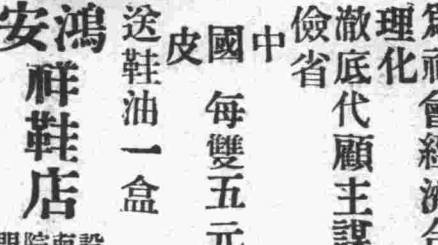 爲社會經濟合
理化
澈底代顧主謀
儉省
中國皮
每雙五元
送鞋油一盒
鴻安
祥鞋店